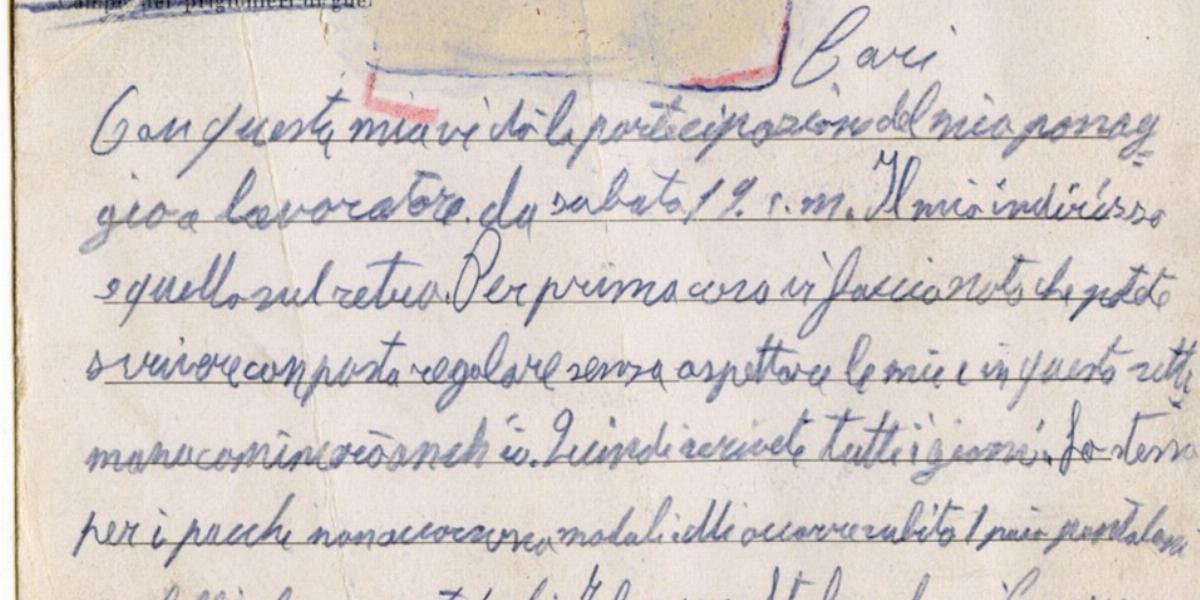 Campo dei prigionieri di gue
Cari
Con questa mia vi dò la partecipazione del mio passag
gio a lavoratore da sabato 19. c.m. Il mio indirizzo
e quello sul retro. Per prima cosa vi faccio noto che potete
scrivere con posta regolare senza aspettare le mie e in questa setti
mana comincerò anch'io. Quindi scrivete tutti i giorni. Lo stesso
per i pacchi non occorrono moduli. Mi occorre subito 1 paio pantaloni